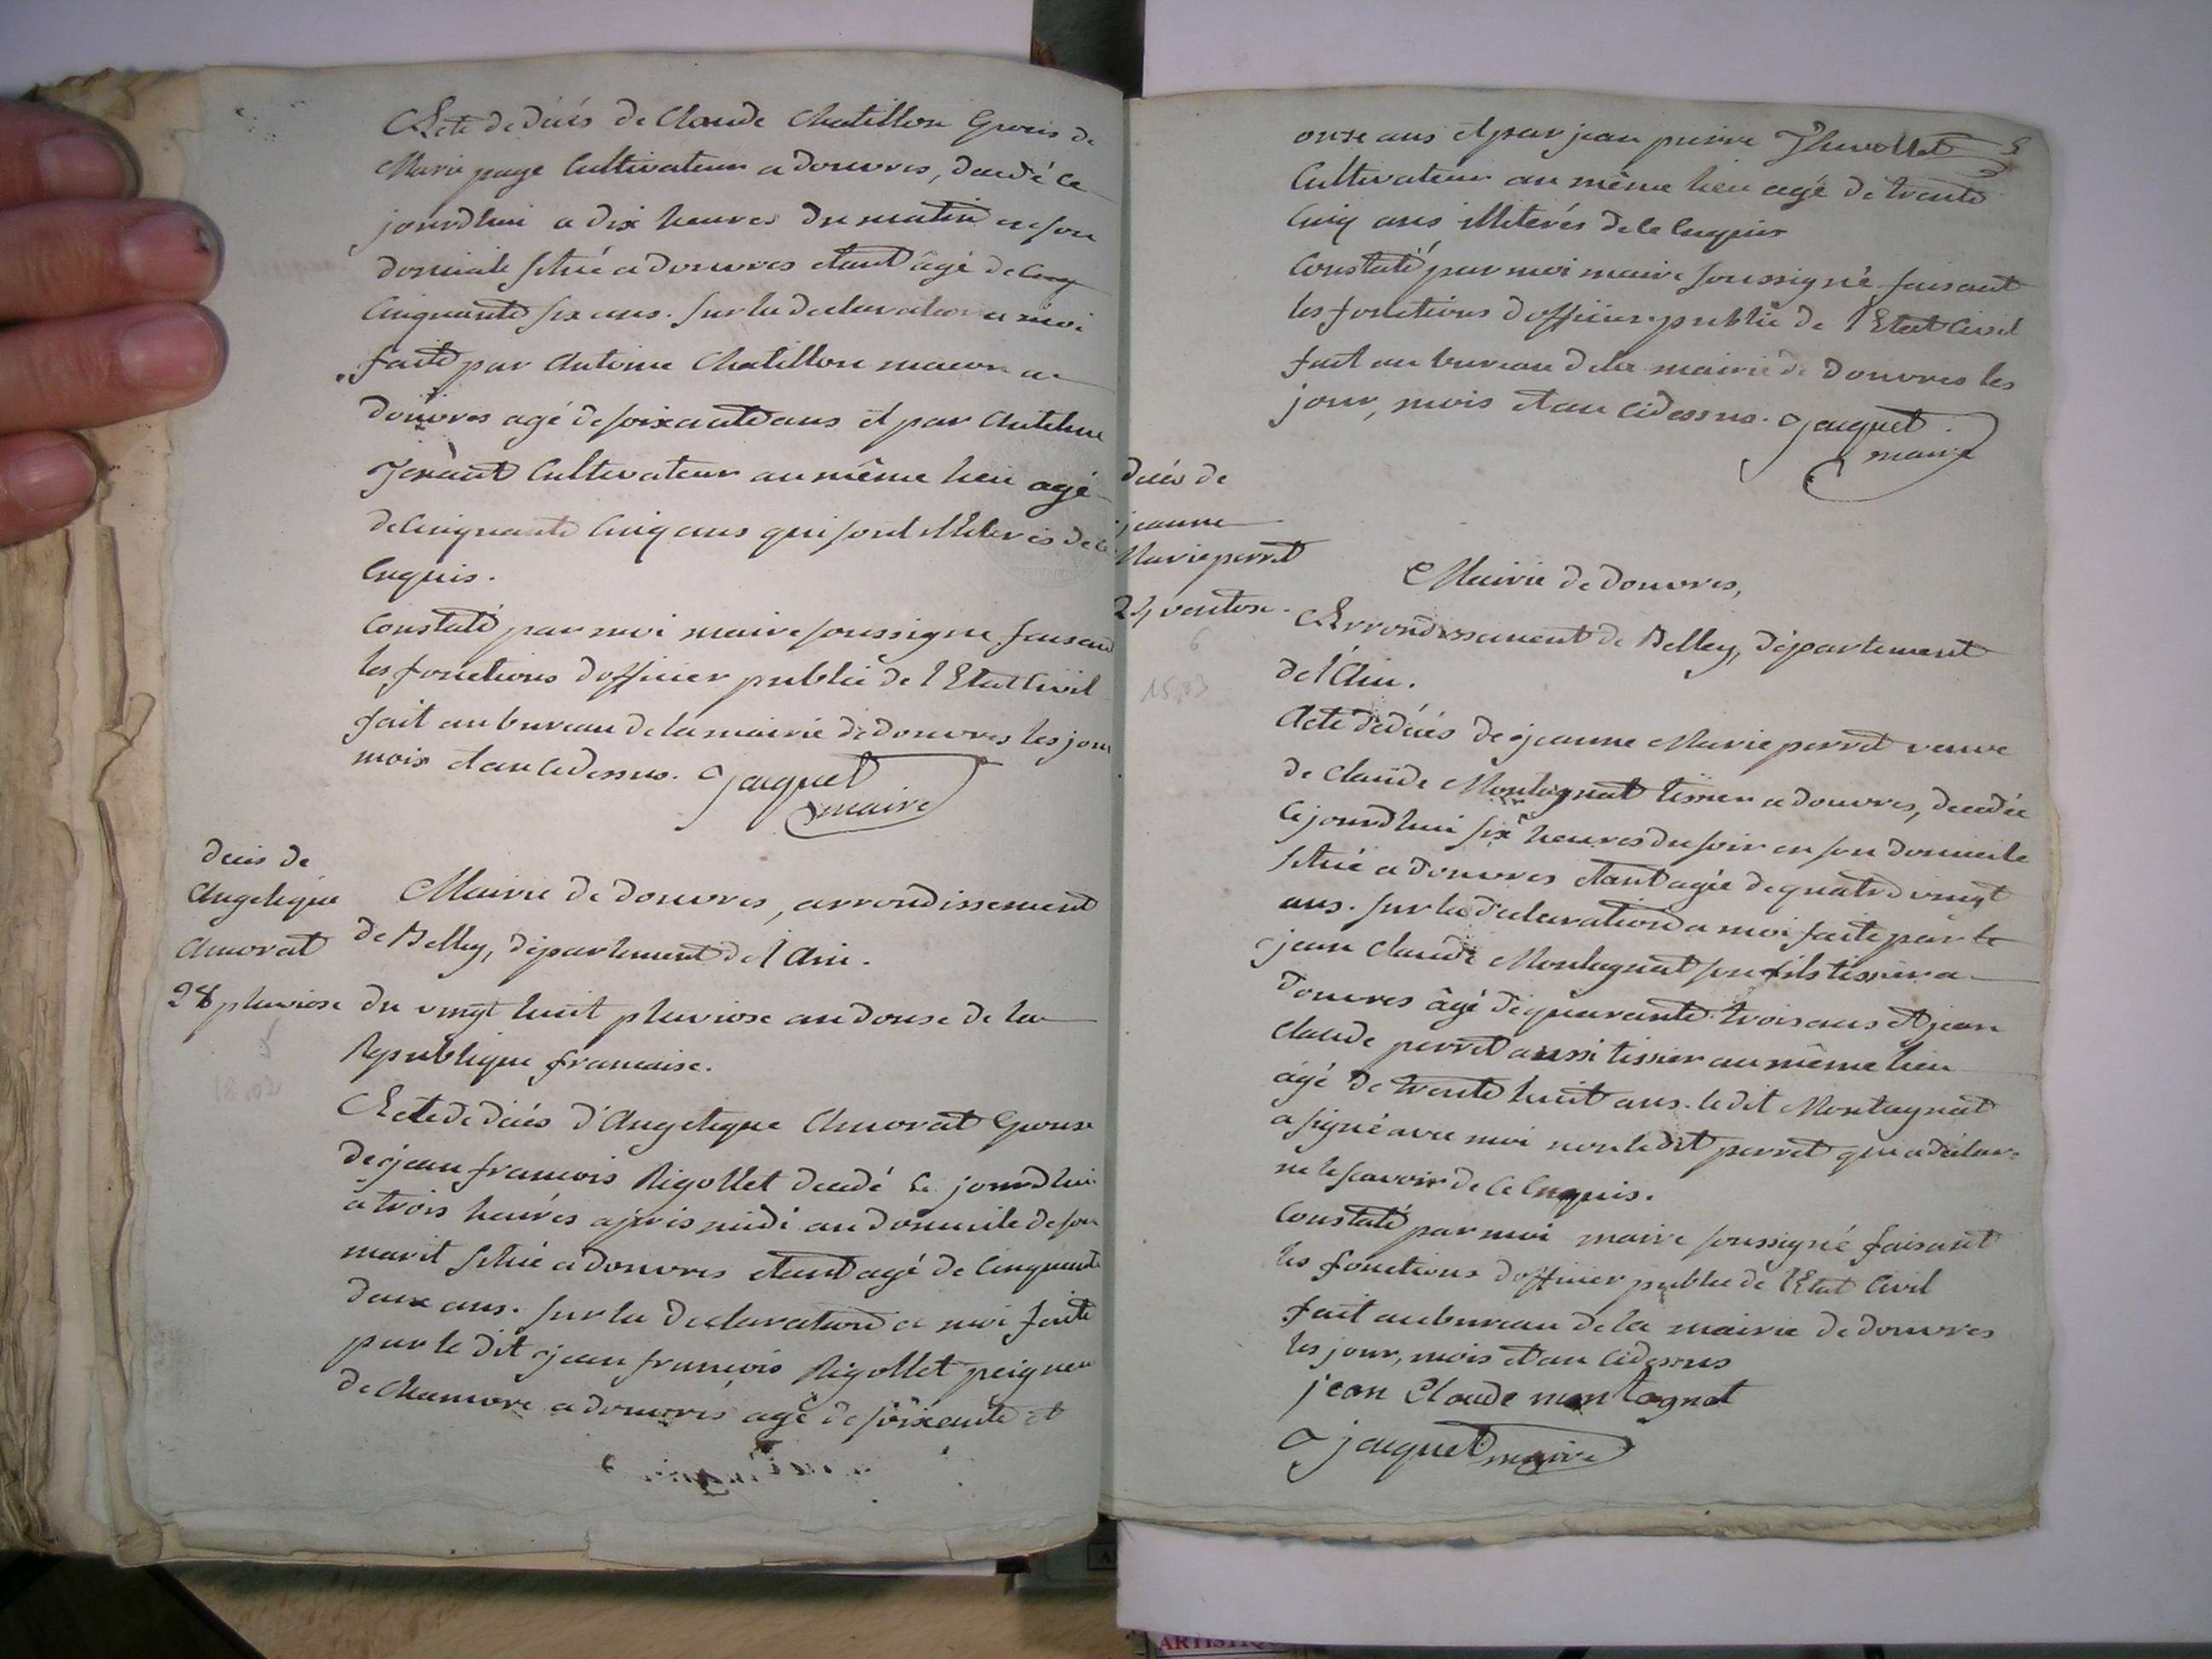 Acte de décés de Claude Chatillon Epouis de
Marie page Cultivateur a douvres, decedé ce
jourdhui a dix heures du matin en son
domicile situé a douvres etant âgé de cinq
Cinquante six ans. sur la declaration a moi
faite par Antoine Chatillon macon a
douvres agé de soixante ans et par Antelme
Cultivateur au même lieu agé
de Cinquante Cinq ans qui sont illiterés de ce
Enquis.
Constaté par moi maire soussigné faisant
les fonctions dofficier public de l'Etat Civil
fait au bureau de la mairie de douvres les jour
mois et an cidessus. Jacquet
maire
décés de
Angelique
Amorat
28 pluviose
Mairie de douvres, arrondissement
de Belley, département de l'Ain.
du vingt huit pluviose an douse de la
Republique francaise.
Acte de décés d'Angelique Amorat Epouse
de jean francois Rigollet decedé ce jourdhui
a trois heures apris midi au domicile de son
marit situé a douvres etant agé de Cinquante
deux ans. sur la declaration a moi faite
par le dit jean francois Rigollet peigneur
de Chanvre a douvres agé de soixante et
onse ans et par jean pierre Thevollet
Cultivateur au même lieu agé de trente
Cinq ans illiterés de ce Enquis
Constaté par moi maire soussigné faisant
les fonctions dofficier public de l'Etat Civil
fait au bureau de la mairie de douvres les
jour, mois et an cidessus. Jacquet
maire
décés de
jeanne
Marie perret
24 ventose.
6
15.03
Mairie de douvres,
Arrondissement de Belley, département
de l'Ain.
Acte de décés de jeanne Marie perret veuve
de Claude Montagnat tissier a douvres, decedée
Ce jourdhui six heures du soir en son domicile
situé a douvres etant agée de quatre vingt
ans. sur la declaration a moi faite par le
jean Claude Montagnat son fils tissier a
douvres âgé de quarante trois ans et jean
Claude perret aussi tissier au même lieu
agé de trente huit ans. le dit Montagnat
a signé avec moi non le dit perret qui a déclaré
ne le scavoir de ce Enquis.
Constaté par moi maire soussigné faisant
les fonctions dofficier public de l'Etat Civil
fait au bureau de la mairie de douvres
les jour, mois et an cidessus
jean Claude montagnat
Jacquet maire